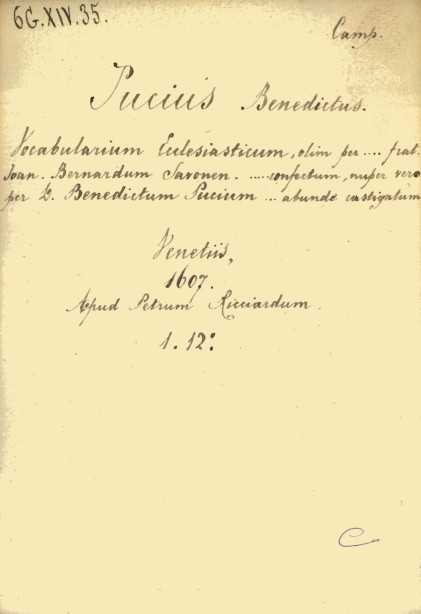 6G.XIV.35.
Camp.
Pucius Benedictus.
Vocabularium Ecclesiasticum, olim per .... frat.
Joan. Bernardum Savonen. ..... confectum, nuper vero
per D. Benedictum Pucium ... abunde castigatum
Venetiis,
1607.
Apud Petrum Ricciardum.
1. 12º.
C